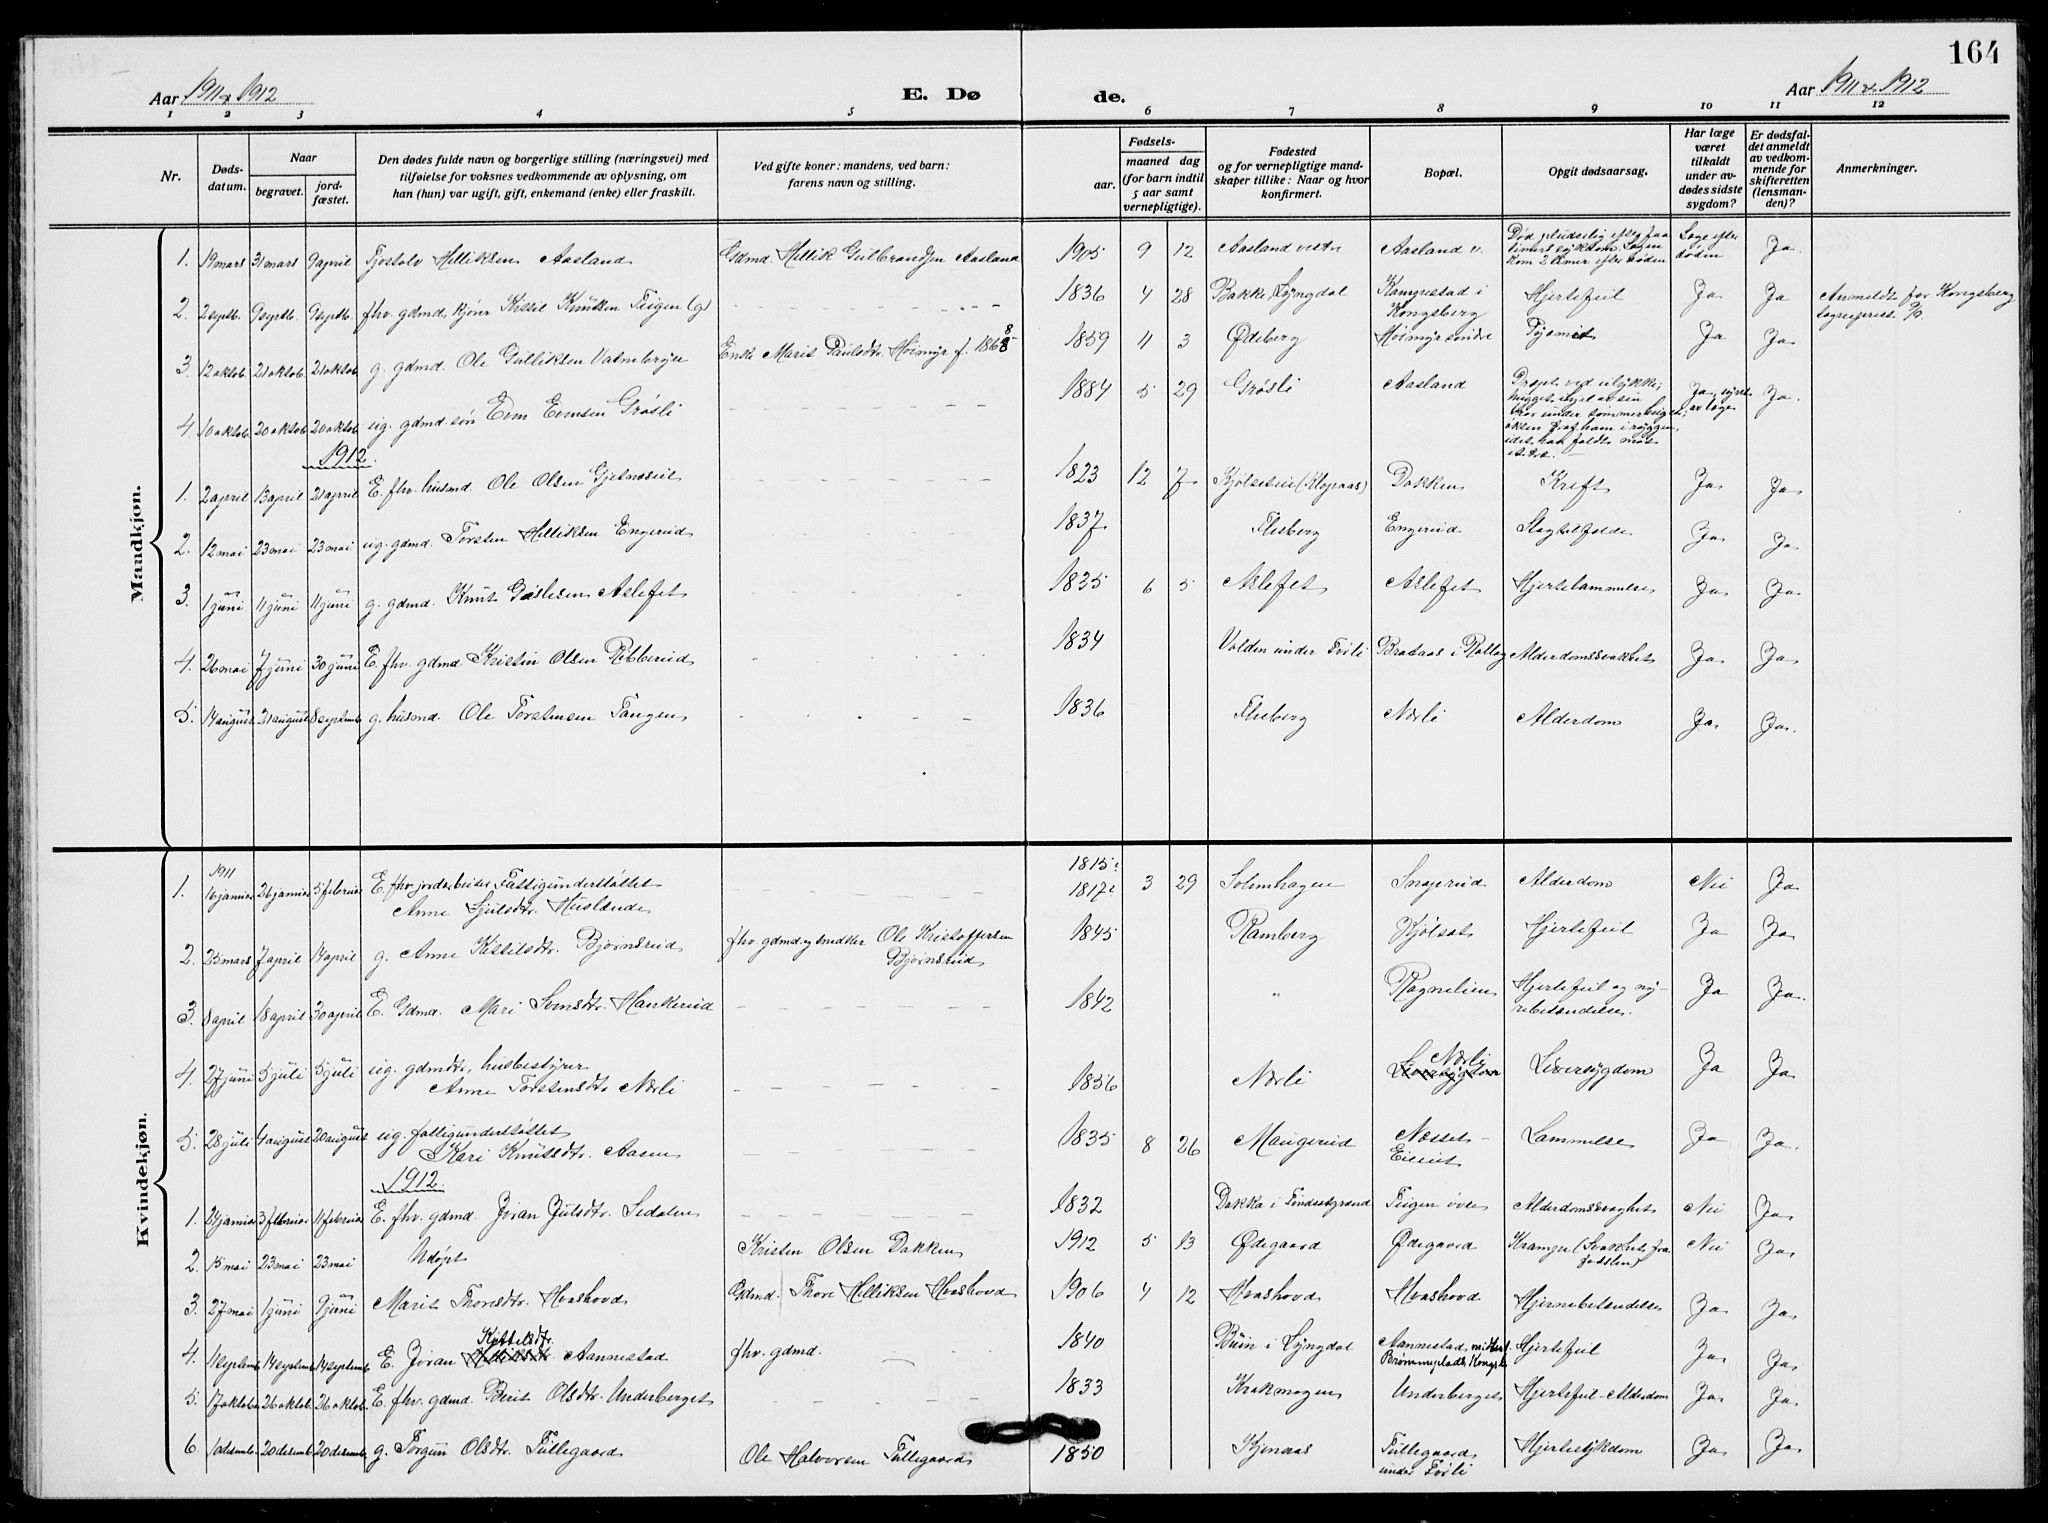 164
Aar 1911 & 1912
E. Dø
de.
Aar 1911 & 1912
1 2 3 4 5 6 7 8 9 10 11 12
Nr.
Døds-
datum.
Naar
begravet.
jord-
fæstet.
Den dødes fulde navn og borgerlige stilling (næringsvei) med
tilføielse for voksnes vedkommende av oplysning, om
han (hun) var ugift, gift, enkemand (enke) eller fraskilt.
Ved gifte koner: mandens, ved barn:
farens navn og stilling.
Fødsels-
aar.
maaned dag
(for barn indtil
5 aar samt
vernepligtige).
Fødested
og for vernepligtige mand-
skaper tillike: Naar og hvor
konfirmert.
Bopæl.
Opgit dødsaarsag.
Har læge
været
tilkaldt
under av-
dødes sidste
sygdom?
Er dødsfal-
det anmeldt
av vedkom-
mende for
skifteretten
(lensman-
den)?
Anmerkninger.
Mandkjøn.
1. 19 mars 31 mars 9 april Tjostolv Helliksen Aasland Gdmd. Hellik Gulbrandsen Aasland 1905 9 12 Aasland vestr. Aasland v. Død pludselig efter faa
timers sykdom. Lægen
kom 2 timer efter døden Læge efter
døden Ja.
2. 2 septb. 9 septb. 9 septb. fhv. gdmd. Kissel Knutsen Teigen (g) 1836 4 28 Bakke, Lyngdal Kampestad i
Kongsberg Hjertefeil Ja Ja Anmeldt for Kongsberg
sogneprest
3. 12 oktob. 21 oktob. 21 oktob. g. gdmd. Ole Gulliksen Enke Marit Paulsdtr. Høimyr f. 1868 1859 11 3 Ødeberg Høimyr søndre Ja Ja.
4. 10 oktob. 20 oktob. 20 oktob. ug. gdmd.søn Even Evensen Grøsli 1884 5 29 Grøsli Aasland Dræpt ved ulykke; Ja. Ja.
1912
1. 2 april 13 april 21 april E. fhv. husmd. Ole Olsen 1823 12 7 Dokken Kreft Ja. Ja.
2. 12 mai 23 mai 23 mai ug. gdmd. Torsten Helliksen Engerud 1837 Flesberg Engerud Slagtilfelde Ja. Ja.
3. 1 juni 11 juni 11 juni g. gdmd. Knut Gislesen Aslefet 1835 6 5 Aslefet Aslefet Hjertelammelse Ja. Ja.
4. 26 mai 7 juni 30 juni E. fhv. gdmd. Kristen Olsen Ribberud 1834 Volden under Fosli Bradaas i Rollag Alderdomssvakhet Ja. Ja.
5. 14 august 21 august 8 septemb g. husmd. Ole Torstensen Tangen 1836 Flesberg Nærli Alderdom Ja. Ja.
Kvindekjøn.
1911
1. 16 januar 26 januar 5 februar E. fhv. jordarbeider, Fattigunderstøttet
Anne Gjulsdtr. Huslende 1815
1817 3 29 Solumhagen Alderdom Nei Ja
2. 25 mars 7 april 17 april g. Anne Kittilsdtr. Bjørnsrud fhv. gdmd. og snedker Ole Kristoffersen
Bjørnsrud 1845 Ramberg Kjølsat Hjertefeil Ja Ja.
3. 8 april 18 april 30 april E. Gdmd. Mari Svensdtr. Haukerud 1842 " Ragnelien Hjertefeil og ny-
rebetændelse. Ja Ja.
4. 27 juni 5 juli 5 juli ug. gdmdtr., husbestyrer
Anne Torstensdtr. Nærli 1856 Nærli Nærli Leversygdom Ja Ja.
5. 28 juli 4 august 20 august ug. fattigunderstøttet
Kari Knutsdtr. Aasen 1835 8 26 Maugerud Næsset-
Eiteit Lammelse Ja Ja.
1912
1. 24 januar 3 februar 11 februar E. fhv. gdmd. Jøran Julsdtr. Sedalen 1832 Bakka i Tindestgrend Teigen øvre Alderdomssvaghet Nei Ja.
2. 15 mai 23 mai 23 mai Udøpt Kristen Olsen Dakken 1912 5 13 Ødegaard Ødegaard Krampe (Svakhet fra
fødslen) Nei Ja.
3. 27 mai 1 juni 9 juni Marit Thoresdtr. Hvashovd Gdmd. Thore Helliksen Hvashovd 1906 4 12 Hvashovd Hvashovd Hjernebetændelse Ja. Ja.
4. 11 septemb 14 septemb 14 septemb E. Jøran Kittelsdtr. Aannestad fhv. gdmd. 1840 Buin i Lyngdal Aannestad, Hjertefeil Ja. Ja.
5. 17 oktober 26 oktob. 26 oktob. E. fhv. gdmd. Berit Olsdtr. Underberget 1833 Krakmogen Underberget Hjertefeil-Alderdom Ja. Ja.
6. 1 desemb 20 desemb 20 desemb g. Torgun Olsdtr. Tullegaard Ole Halvorsen Tullegaard 1850 Kjenaas Tullegaard
under Fosli Hjertesykdom Ja. Ja.